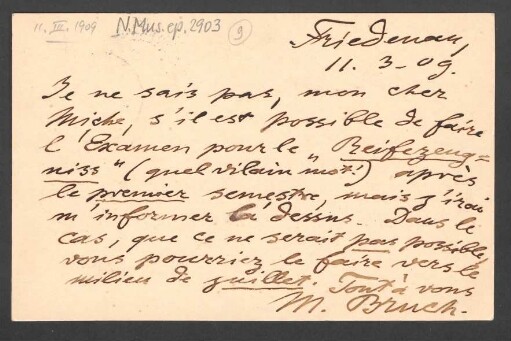 11. III. 1909 N.Mus.ep. 2903 9
Friedenau,
11. 3-09.
Je ne sais pas, mon cher
Miche, s'il est possible de faire
l'Examen pour le „Reifezeug=
niss" (quel vilain mot!) après
le premier semestre, mais j'irai
m'informer là dessus. Dans le
cas, que ce ne serait pas possible,
vous pourriez le faire vers le
milieu de juillet. Tout à vous
M. Bruch.